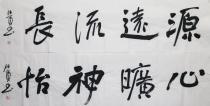 源遠流長
心曠神怡